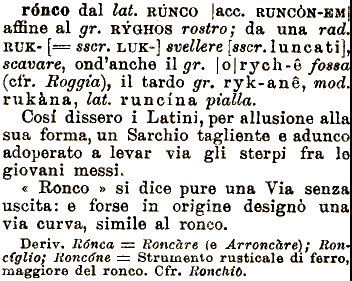 rónco dal lat. RÚNCO [acc. RUNCÒN-EM]
affine al gr. RÝGHOS rostro; da una rad.
RUK- [= sscr. LUK-] svellere [sscr. luncati],
scavare, ond'anche il gr. [o]rych-ê fossa
(cfr. Roggia), il tardo gr. ryk-anê, mod.
rukàna, lat. runcína pialla.
Cosí dissero i Latini, per allusione alla
sua forma, un Sarchio tagliente e adunco
adoperato a levar via gli sterpi fra le
giovani messi.
« Ronco » si dice pure una Via senza
uscita: e forse in origine designò una
via curva, simile al ronco.
Deriv. Rónca = Roncàre (e Arroncàre); Ron-
cíglio; Roncóne = Strumento rusticale di ferro,
maggiore del ronco. Cfr. Ronchiò.